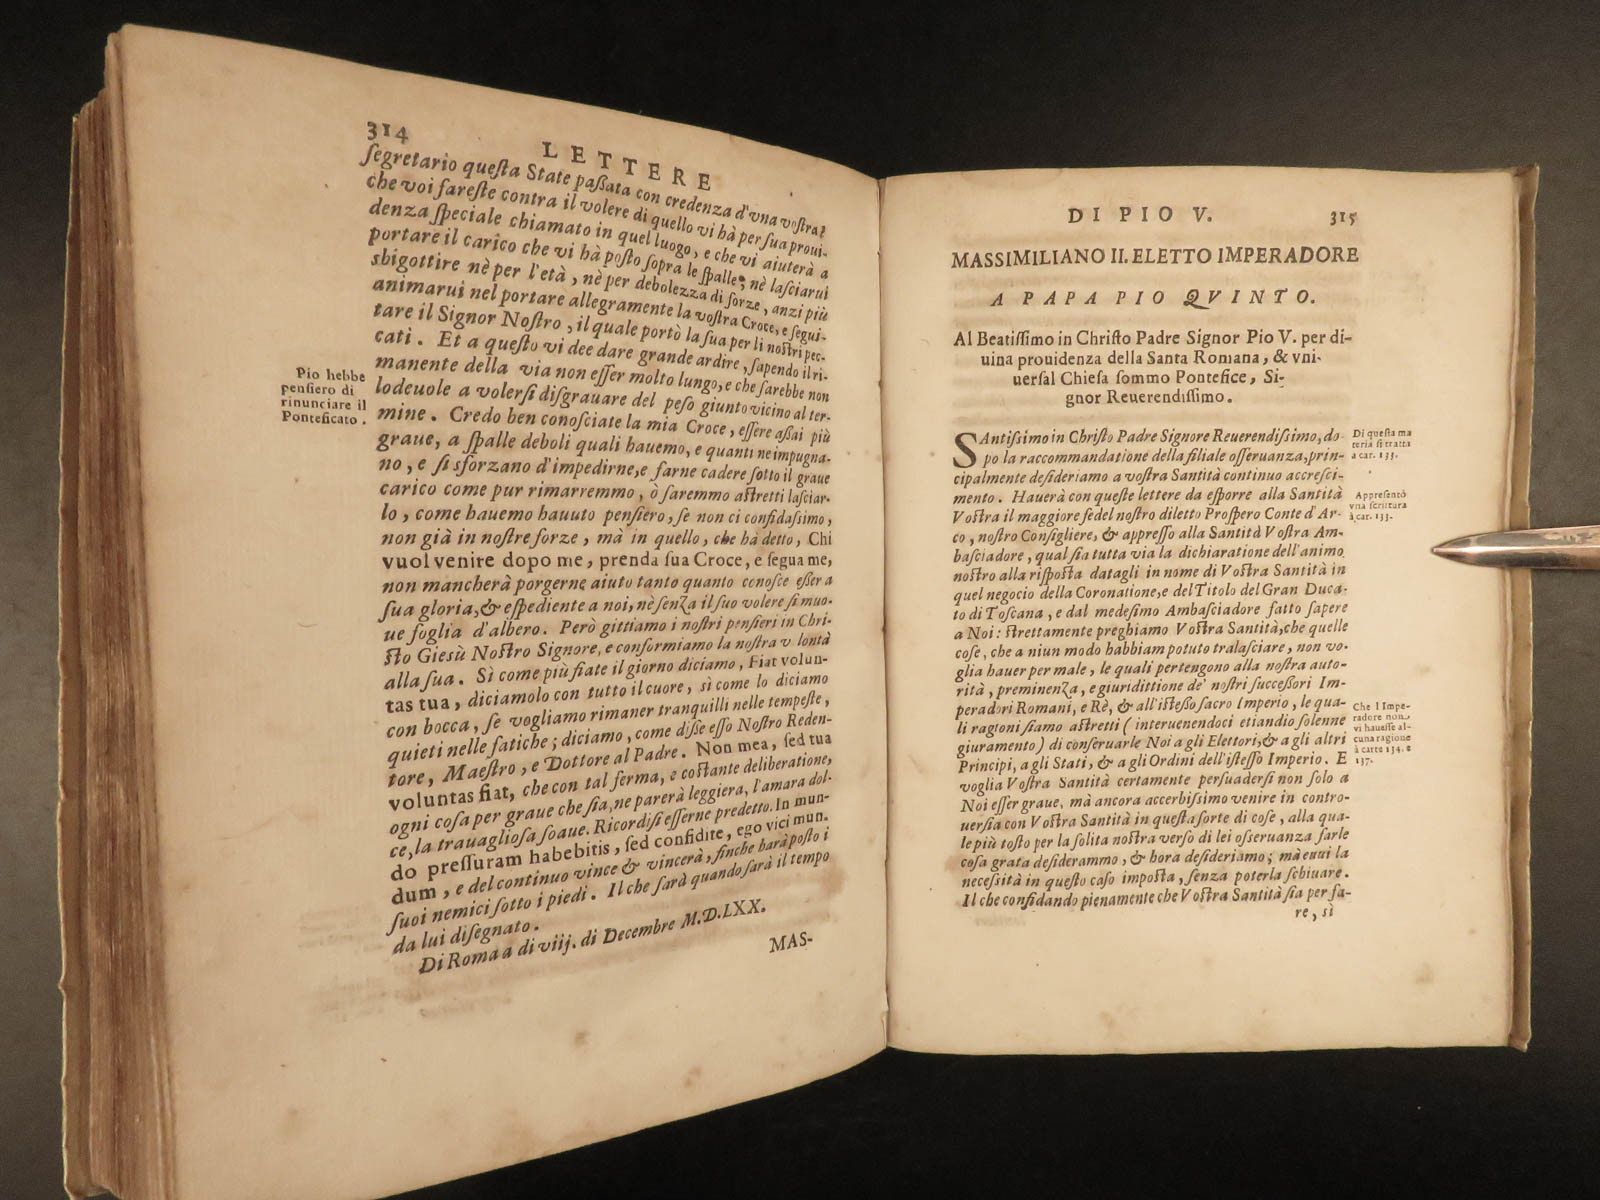 314
LETTERE
segretario questa State passata con credenza d'vna vostra?
che voi fareste contra il volere di quello vi hà per sua proui-
denza speciale chiamato in quel luogo, e che vi aiuterà a
portare il carico che vi hà posto sopra le spalle; nè lasciarui
sbigottire nè per l'età, nè per debolezza di forze, anzi più
animarui nel portare allegramente la vostra Croce, e segui-
tare il Signor Nostro, il quale portò la sua per li nostri pec-
cati. Et a questo vi dee dare grande ardire, sapendo il ri-
manente della via non esser molto lungo, e che sarebbe non
lodeuole a volersi disgrauare del peso giunto vicino al ter-
mine. Credo ben conosciate la mia Croce, essere assai più
graue, a spalle deboli quali hauemo, e quanti ne impugna-
no, e si sforzano d'impedirne, e farne cadere sotto il graue
carico come pur rimarremmo, ò saremmo astretti lasciar-
lo, come hauemo hauuto pensiero, se non ci confidassimo,
non già in nostre forze, mà in quello, che hà detto, Chi
vuol venire dopo me, prenda sua Croce, e segua me,
non mancherà porgerne aiuto tanto quanto conosce esser a
sua gloria, & espediente a noi, nè senza il suo volere si muo-
ue foglia d'albero. Però gittiamo i nostri pensieri in Chri-
sto Giesù Nostro Signore, e conformiamo la nostra volontà
alla sua. Sì come più fiate il giorno diciamo, Fiat volun-
tas tua, diciamolo con tutto il cuore, sì come lo diciamo
con bocca, se vogliamo rimaner tranquilli nelle tempeste,
quieti nelle fatiche; diciamo, come disse esso Nostro Reden-
tore, Maestro, e Dottore al Padre. Non mea, sed tua
voluntas fiat, che con tal ferma, e costante deliberatione,
ogni cosa per graue che sia, ne parerà leggiera, l'amara dol-
ce, la trauagliosa soaue. Ricordisi esserne predetto. In mun-
do pressuram habebitis, sed confidite, ego vici mun.
dum, e del continuo vince & vincerà, finche harà posto i
suoi nemici sotto i piedi. Il che sarà quando sarà il tempo
da lui disegnato.
Di Roma a di viij. di Decembre M.D.LXX.
MAS-
Pio hebbe
pensiero di
rinunciare il
Ponteficato.
DI PIO V.
315
MASSIMILIANO II. ELETTO IMPERADORE
A PAPA PIO QVINTO.
Al Beatissimo in Christo Padre Signor Pio V. per di-
uina prouidenza della Santa Romana, & vni-
uersal Chiesa sommo Pontefice, Si-
gnor Reuerendissimo.
SAntissimo in Christo Padre Signore Reuerendissimo, do-
po la raccommandatione della filiale osseruanza, prin-
cipalmente desideriamo a vostra Santità continuo accresci-
mento. Hauerà con queste lettere da esporre alla Santità
Vostra il maggiore fedel nostro diletto Prospero Conte d'Ar-
co, nostro Consigliere, & appresso alla Santità Vostra Am-
basciadore, qual sia tutta via la dichiaratione dell'animo
nostro alla risposta datagli in nome di Vostra Santità in
quel negocio della Coronatione, e del Titolo del Gran Duca-
to di Toscana, e dal medesimo Ambasciadore fatto sapere
a Noi: strettamente preghiamo Vostra Santità, che quelle
cose, che a niun modo habbiam potuto tralasciare, non vo-
glia hauer per male, le quali pertengono alla nostra auto-
rità, preminenza, e giuridittione de' nostri successori Im-
peradori Romani, e Rè, & all'istesso sacro Imperio, le qua-
li ragioni siamo astretti (interuenendoci etiandio solenne
giuramento) di conseruarle Noi a gli Elettori, & a gli altri
Principi, a gli Stati, & a gli Ordini dell'istesso Imperio. E
voglia Vostra Santità certamente persuadersi non solo a
Noi esser graue, mà ancora accerbissimo venire in contro-
uersia con Vostra Santità in questa sorte di cose, alla qua-
le più tosto per la solita nostra verso di lei osseruanza farle
cosa grata desiderammo, & hora desideriamo; mà euui la
necessità in questo caso imposta, senza poterla schiuare.
Il che confidando pienamente che Vostra Santità sia per fa-
re, sì
Di questa ma
teria si tratta
a car. 133.
Appresentò
vna scrittura
à car. 133.
Che l Impe-
radore non
vi hauesse al-
cuna ragione
à carte 134. e
137.